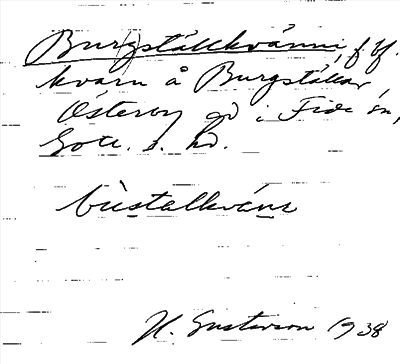 Bur(g)ställkvänni, f. bf.
kvarn å Burgställar,
Österby gd i Fide sn,
Gotl. s. hd.
bùstalkvánn
H. Gustavson 1938